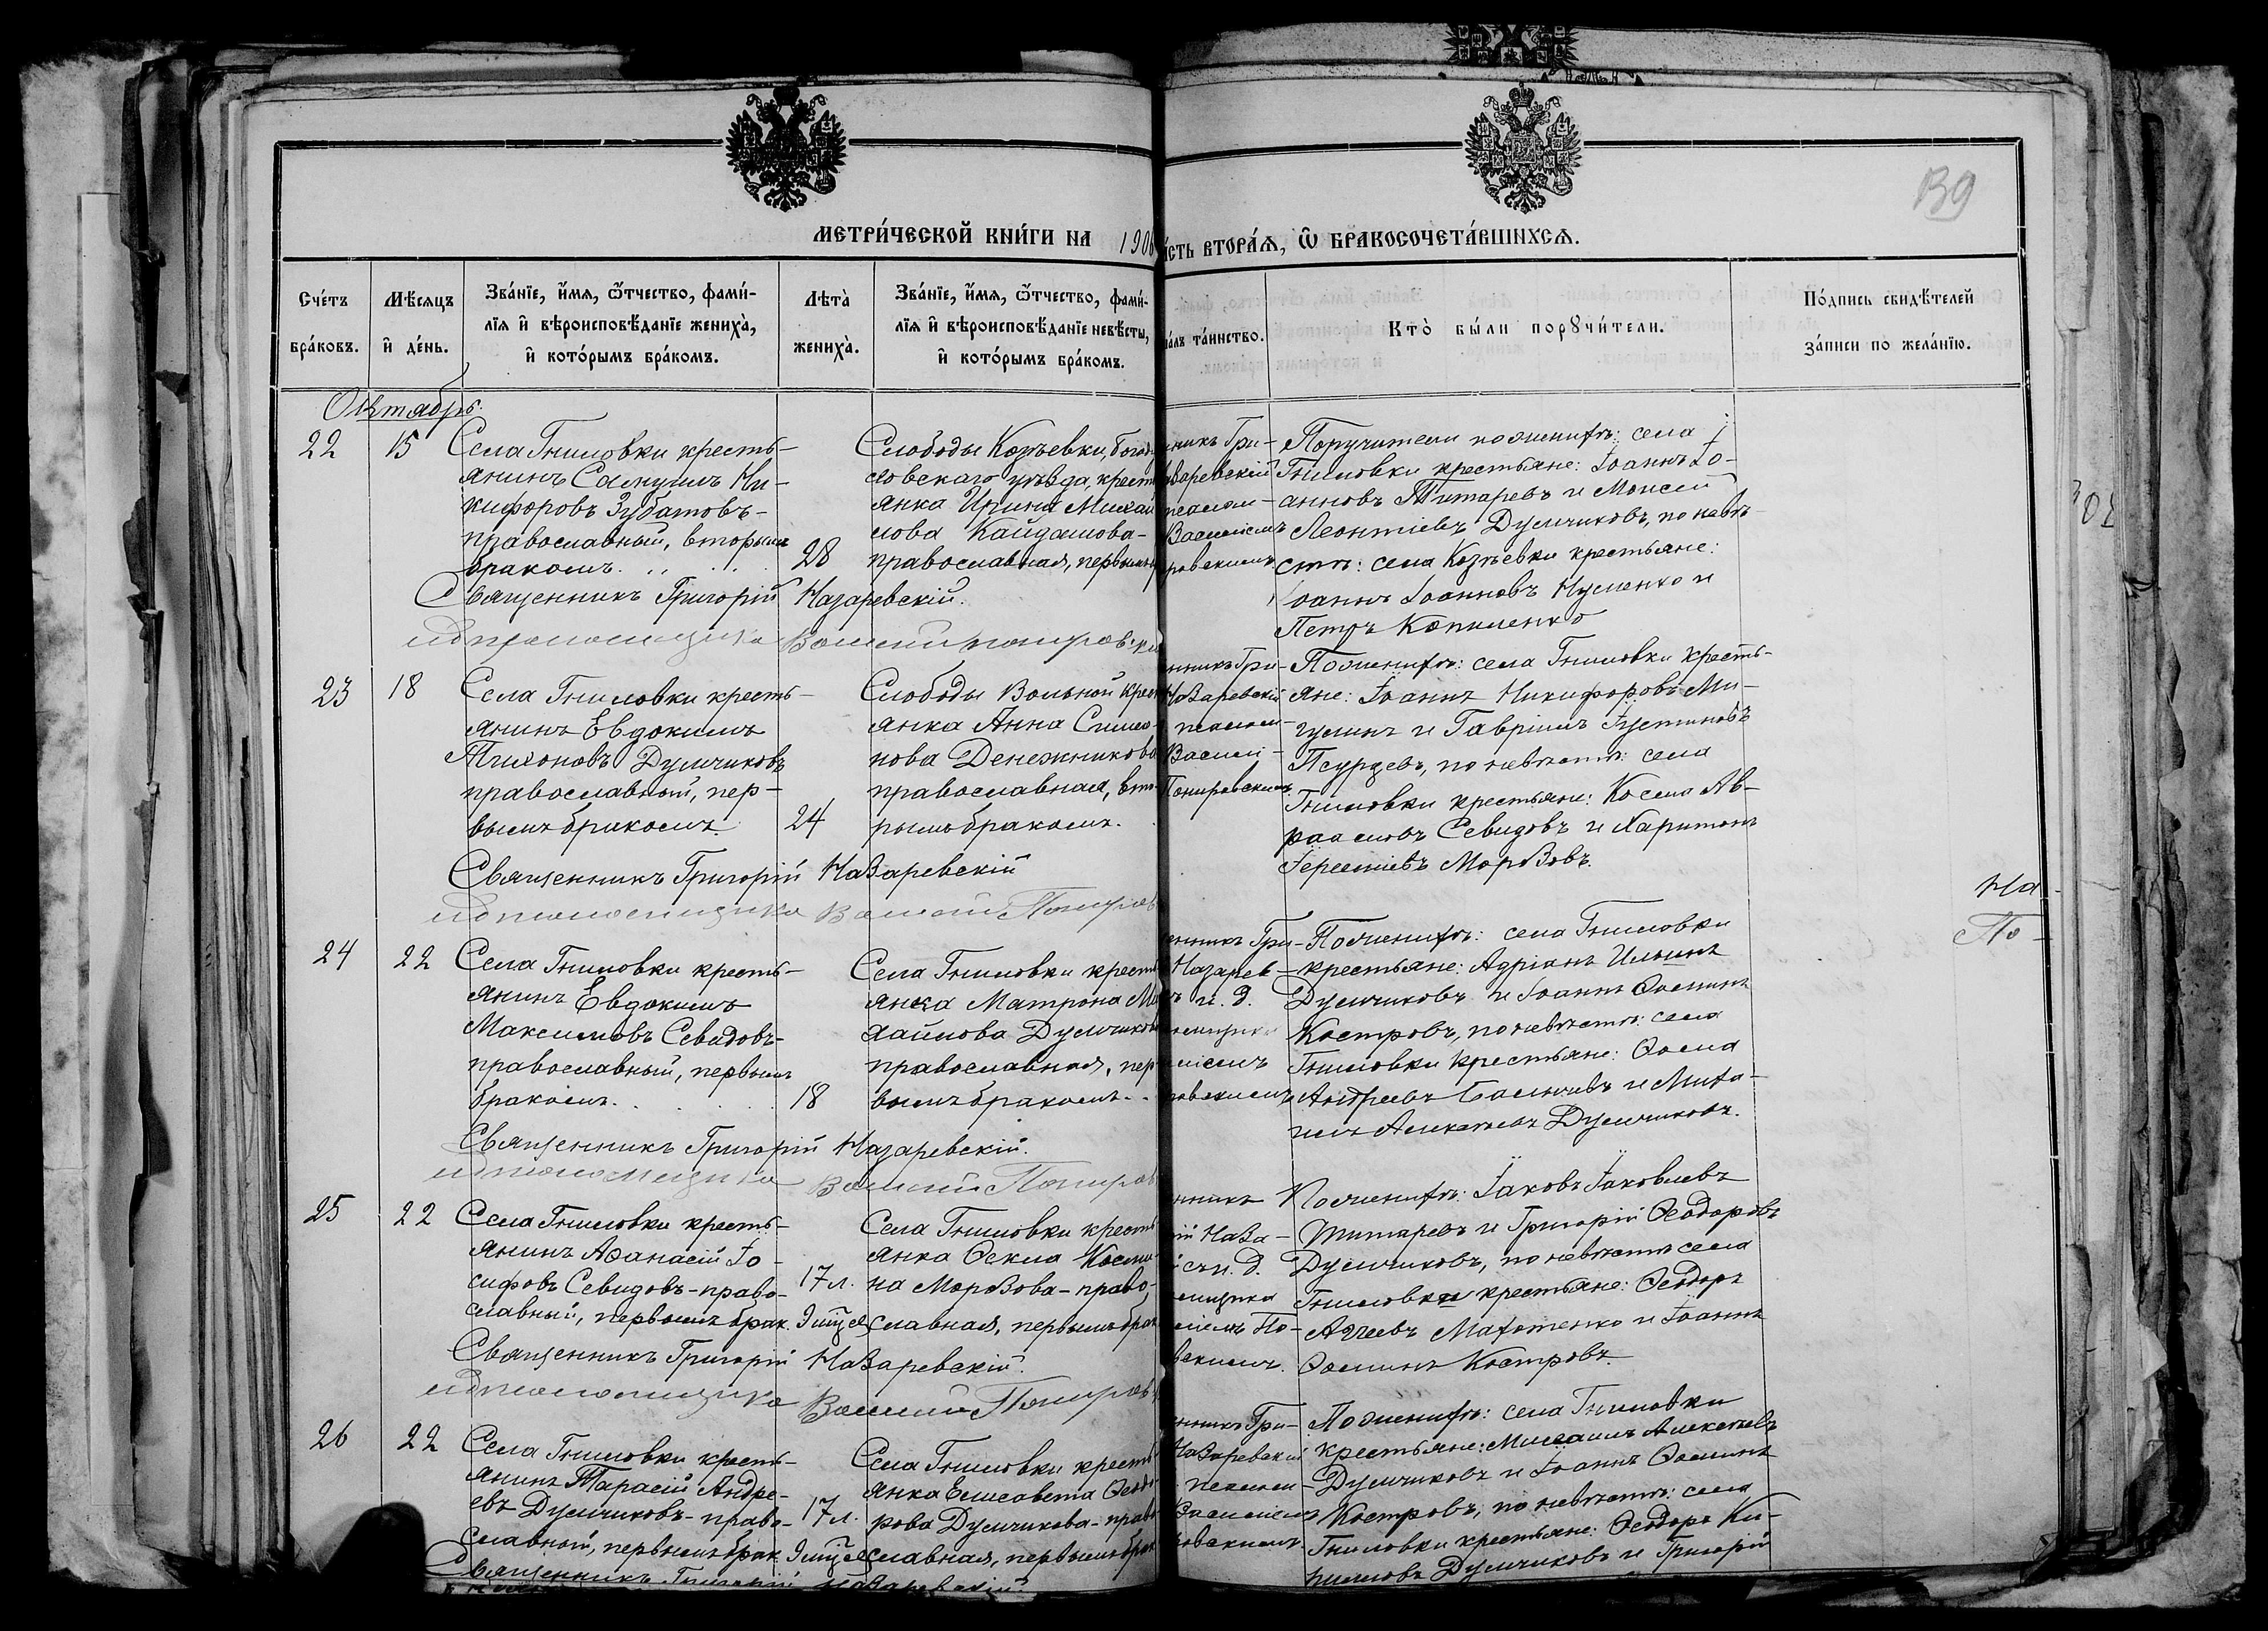 139
МЕТРИ́ЧЕСКОЙ КНИ́ГИ НА 1906
СТЬ ВТОРА́Я, Ѿ БРАКОСОЧЕТА́ВШИХСЯ.
Сче́тъ бра́ковъ.
Мѣ́сяцъ и҆ де́нь.
Зва́нїе, и҆́мя, ѻ҆́тчество, фами́-
лїя и҆ вѣроисповѣ́данїе жениха̀,
и҆ кото́рымъ бра́комъ.
Лѣта̀ жениха̀.
Зва́нїе, и҆́мя, ѻ҆́тчество, фами́-
лїя и҆ вѣроисповѣ́данїе невѣ́сты,
и҆ кото́рымъ бра́комъ.
а́лъ та́инство.
Кто̀ бы́ли порꙋчи́тели.
По́дпись свидѣ́телей
за́писи по жела́нїю.
Октябрь.
22
15
Села Гниловки кресть-
янинъ Самуилъ Ни-
кифоровъ Зубатовъ-
православный, вторымъ
бракомъ.
28
Слободы Козѣевки, бого
ловскаго уѣзда, крест
янка Ирина Михаи
лова Кайдалова-
православная, первымъ
никъ Гри-
заревскій
псалом-
Василіемъ
ровскимъ
Поручители по женихѣ: села
Гниловки крестьяне: Іоаннъ Іо-
анновъ Титаревъ и Моисей
Леонтіевъ Думчиковъ, по невѣ-
стѣ: села Козѣевки крестьяне:
Іоаннъ Іоанновъ Нуменко и
Петръ Копиленко
Священникъ Григорій Назаревскій.
ид псаломщика Василий Покровски
23
18
Села Гниловки кресть-
янинъ Евдокимъ
Тихоновъ Думчиковъ
православный, пер-
вымъ бракомъ
24
Слободы Вольной крес
янка Анна Симо-
нова Денежникова
православная, вто-
рымъ бракомъ.
нникъ Гри-
Назаревскій
псалом-
Василі-
Покровскимъ
По женихѣ: села Гниловки кресть-
яне: Іоаннъ Никифоровъ Ми-
гулинъ и Гавріилъ Іустиновъ
Псурцевъ, по невѣстѣ: села
Гниловки крестьяне: Косма Ав-
раамовъ Севидовъ и Харитонъ
Іереміевъ Морозовъ.
Священникъ Григорій Назаревскій
ид псаломщика Василий Покров
На-
По-
24
22
Села Гниловки кресть-
янинъ Евдокимъ
Максимовъ Севидовъ-
православный, первымъ
бракомъ.
18
Села Гниловки крест
янка Матрона Ми
хаилова Думчиков
православная, пер
вымъ бракомъ.
енникъ Гри-
Назарев-
ъ и. д.
омщика
иліемъ
ровскимъ
По женихѣ: села Гниловки
крестьяне: Адріанъ Ильинъ
Думчиковъ и Іоаннъ Ѳоминъ
Костровъ, по невѣстѣ: села
Гниловки крестьяне: Ѳома
Андреевъ и Миха-
илъ Алексѣевъ Думчиковъ.
Священникъ Григорій Назаревскій.
ид псаломщика Василий Покров
25
22
Села Гниловки кресть-
янинъ Аѳанасій Іо-
сифовъ Севидовъ-право-
славный, первымъ брак.
17 л.
9 мцѣ
Села Гниловки крест
янка Ѳекла Косми-
на Морозова-право-
славная, первымъ брак
нникъ
ій Наза-
съ и. д.
омщика
иемъ По-
вскимъ.
По женихѣ: Іаковъ Іаковлевъ
Титаревъ и Григорій Ѳеодоровъ
Думчиковъ, по невѣстѣ села
Гниловки крестьяне: Ѳеодоръ
Аггеевъ Махотенко и Іоаннъ
Ѳоминъ Костровъ.
Священникъ Григорій Назаревскій.
ид псаломщика Василий Покров
26
22
Села Гниловки кресть-
янинъ Тарасій Андре-
евъ Думчиковъ-право-
славный, первымъ брак.
17 л.
9 мцѣ
Села Гниловки крест
янка Елисавета Ѳеодо
рова Думчикова-право
славная, первымъ брак
нникъ Гри-
Назаревскій
псалом-
Василіемъ
ровскимъ
По женихѣ: села Гниловки
крестьяне: Михаилъ Алексѣевъ
Думчиковъ и Іоаннъ Ѳоминъ
Костровъ, по невѣстѣ: села
Гниловки крестьяне: Ѳеодоръ Ки-
рилловъ Думчиковъ и Григорій
Священникъ Григорій Назаревскій